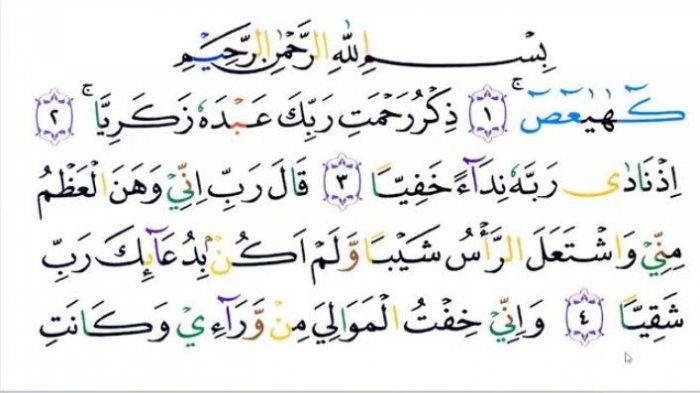 بِسْمِ اللهِ الرَّحْمٰنِ الرَّحِيْمِ
كۤهٰيٰعۤصۤ ۚ ١ ذِكْرُ رَحْمَتِ رَبِّكَ عَبْدَهٗ زَكَرِيَّا ۚ ٢
اِذْ نَادٰى رَبَّهٗ نِدَاۤءً خَفِيًّا ٣ قَالَ رَبِّ اِنِّيْ وَهَنَ الْعَظْمُ
مِنِّيْ وَاشْتَعَلَ الرَّأْسُ شَيْبًا وَّلَمْ اَكُنْۢ بِدُعَاۤىِٕكَ رَبِّ
شَقِيًّا ٤ وَاِنِّيْ خِفْتُ الْمَوَالِيَ مِنْ وَّرَاۤءِيْ وَكَانَتِ